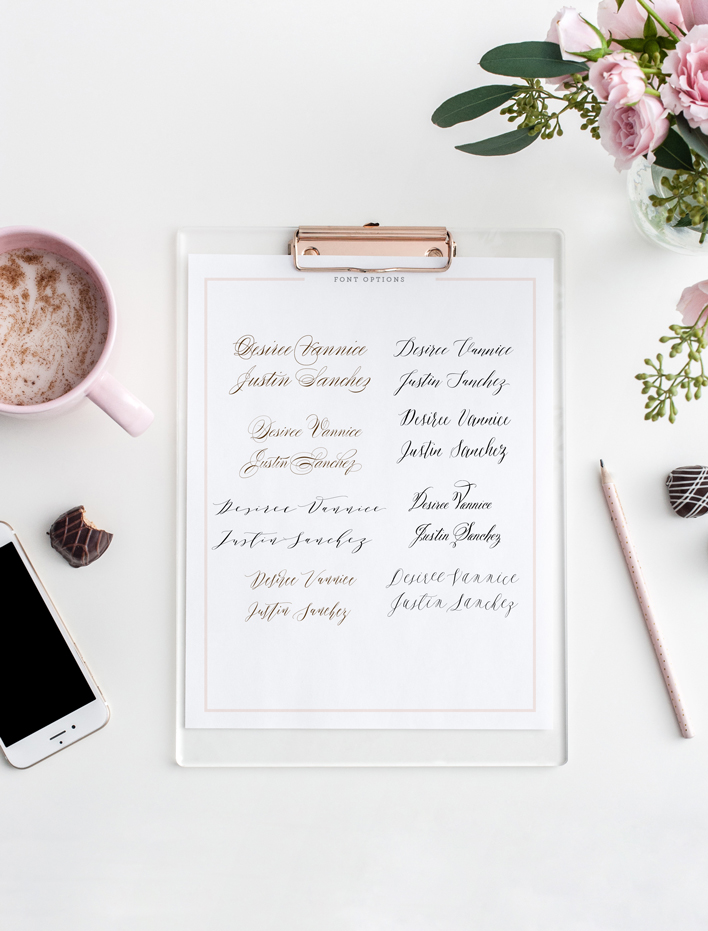 FONT OPTIONS
Desiree Vannice
Justin Sanchez
Desiree Vannice
Justin Sanchez
Desiree Vannice
Justin Sanchez
Desiree Vannice
Justin Sanchez
Desiree Vannice
Justin Sanchez
Desiree Vannice
Justin Sanchez
Desiree Vannice
Justin Sanchez
Desiree Vannice
Justin Sanchez